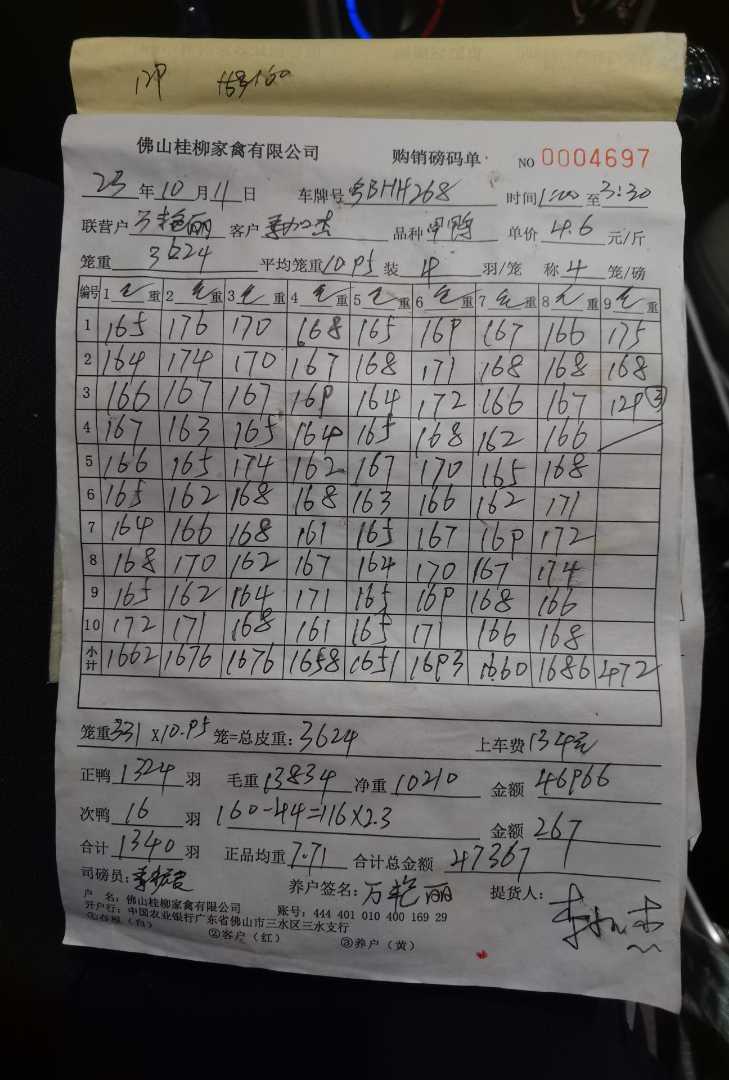 129
佛山桂柳家禽有限公司 购销磅码单 NO 0004697
23年10月11日 车牌号粤BHH268 时间1:00至3:30
联营户万艳丽 客户 品种 甲鸭 单价 4.6 元/斤
笼重 3624 平均笼重10.95 装 4 羽/笼 称 4 笼/磅
编号 1 毛重 2 毛重 3 毛重 4 毛重 5 毛重 6 毛重 7 毛重 8 毛重 9 毛重
1 165 176 170 168 165 169 167 166 175
2 164 174 170 167 168 171 168 168 168
3 166 167 167 169 164 172 166 167 129 ③
4 167 163 165 164 165 168 162 166
5 166 165 174 162 167 170 165 168
6 165 162 168 168 163 166 162 171
7 164 166 168 161 165 167 169 172
8 168 170 162 167 164 170 167 174
9 165 162 164 171 165 169 168 166
10 172 171 168 161 165 171 166 168
小计 1662 1676 1676 1658 1651 1693 1660 1686 472
笼重331×10.95笼=总皮重:3624 上车费134元
正鸭1324羽 毛重13834净重10210 金额46966
次鸭16羽 160-44=116×2.3 金额267
合计1340羽 正品均重7.71 合计总金额47367
司磅员: 养户签名:万艳丽 提货人:
户 名:佛山桂柳家禽有限公司 账号:444 401 010 400 169 29
开户行:中国农业银行广东省佛山市三水区三水支行
②客户(红) ③养户(黄)